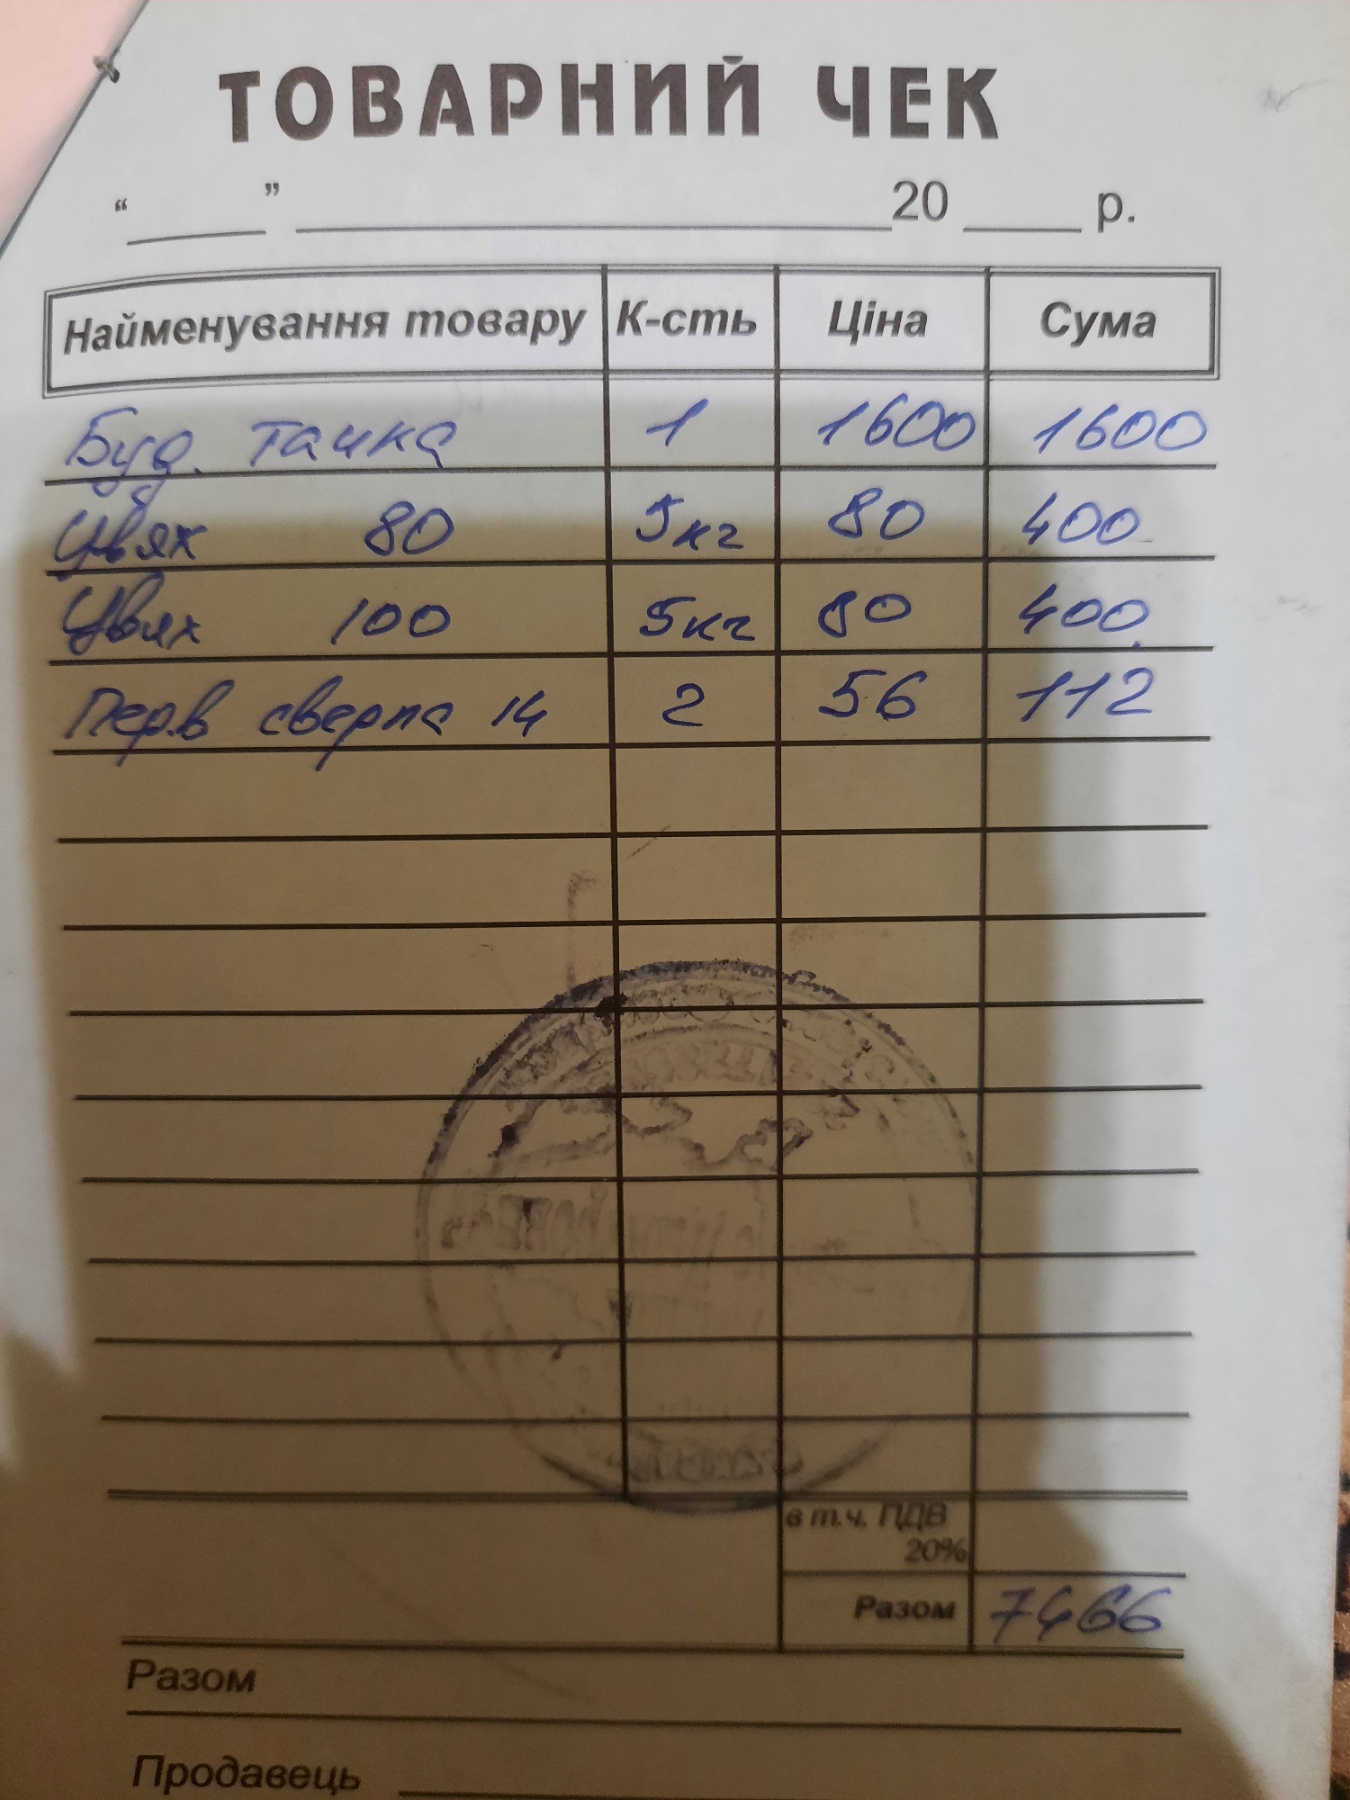 ТОВАРНИЙ ЧЕК
“ ” 20 р.
Найменування товару К-сть Ціна Сума
Буд. тачка 1 1600 1600
Цвях 80 5кг 80 400
Цвях 100 5кг 80 400
Пер.в сверла 14 2 56 112
в т.ч. ПДВ
20%
Разом 7466
Разом
Продавець